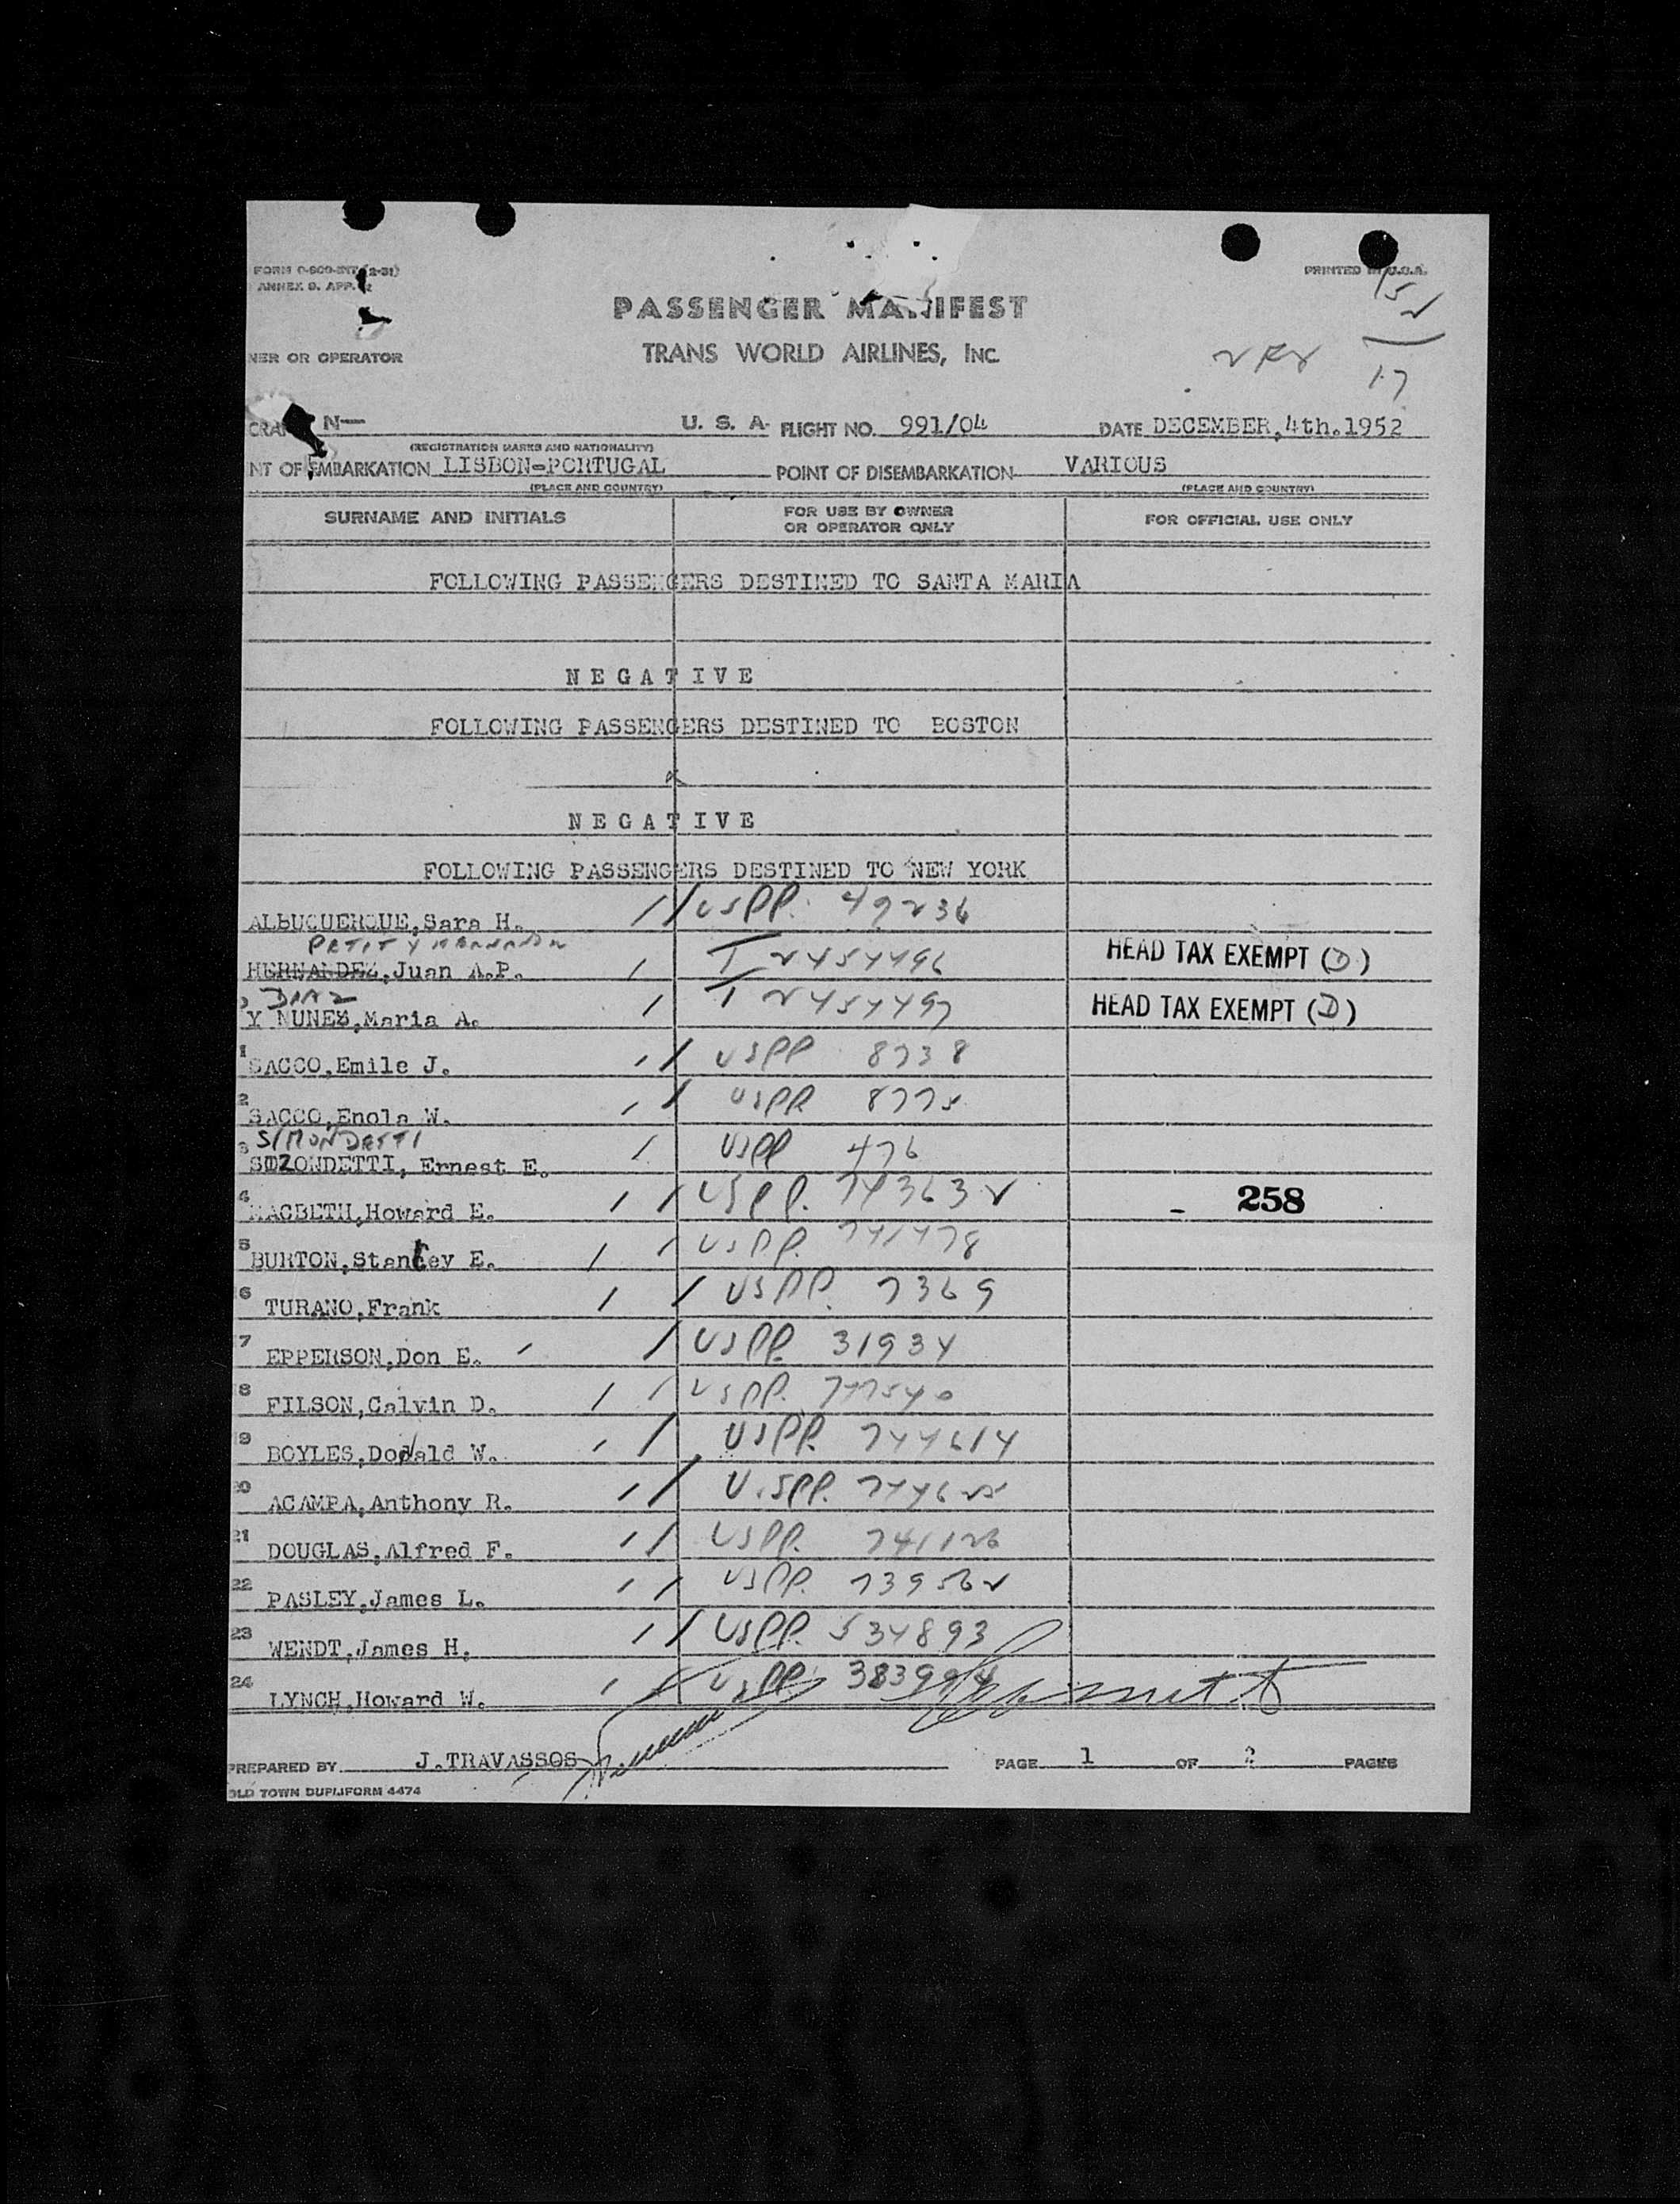 FORM O-800-INT (2-51)
ANNEX 9. APP. 2
PRINTED IN U.S.A.
PASSENGER MANIFEST
15
2
17
NER OR OPERATOR
TRANS WORLD AIRLINES, INC.
CRAFT N— U. S. A. FLIGHT NO. 991/04 DATE DECEMBER,4th.1952
(REGISTRATION MARKS AND NATIONALITY)
NT OF EMBARKATION LISBON-PORTUGAL POINT OF DISEMBARKATION VARIOUS
(PLACE AND COUNTRY) (PLACE AND COUNTRY)
SURNAME AND INITIALS FOR USE BY OWNER OR OPERATOR ONLY FOR OFFICIAL USE ONLY
FOLLOWING PASSENGERS DESTINED TO SANTA MARIA
N E G A T I V E
FOLLOWING PASSENGERS DESTINED TO BOSTON
N E G A T I V E
FOLLOWING PASSENGERS DESTINED TO NEW YORK
ALBUQUERQUE,Sara H. // USPP. 49236
PETIT Y
HERNANDEZ,Juan A.P. / T 2454496 HEAD TAX EXEMPT (D)
DIAZ
Y NUNEZ,Maria A. / T 2454497 HEAD TAX EXEMPT (D)
1 SACCO,Emile J. // USPP 8738
2 SACCO,Enola W. // USPP 8775
SIMONDETTI
3 SMZONDETTI, Ernest E. / USPP 476
4 MACBETH,Howard E. // USPP. 743632 258
5 BURTON,Stanley E. // USPP. 741478
6 TURANO,Frank // USPP. 7369
7 EPPERSON,Don E. // USPP. 31934
8 FILSON,Calvin D. // USPP. 747540
9 BOYLES,Donald W. // USPP. 744614
20 ACAMPA,Anthony R. // U.SPP. 744625
21 DOUGLAS,Alfred F. // USPP. 741126
22 PASLEY,James L. // USPP. 739562
23 WENDT,James H. // USPP. 534893
24 LYNCH,Howard W. / USPP. 383994
PREPARED BY J.TRAVASSOS PAGE 1 OF 2 PAGES
OLD TOWN DUPLIFORM 4474